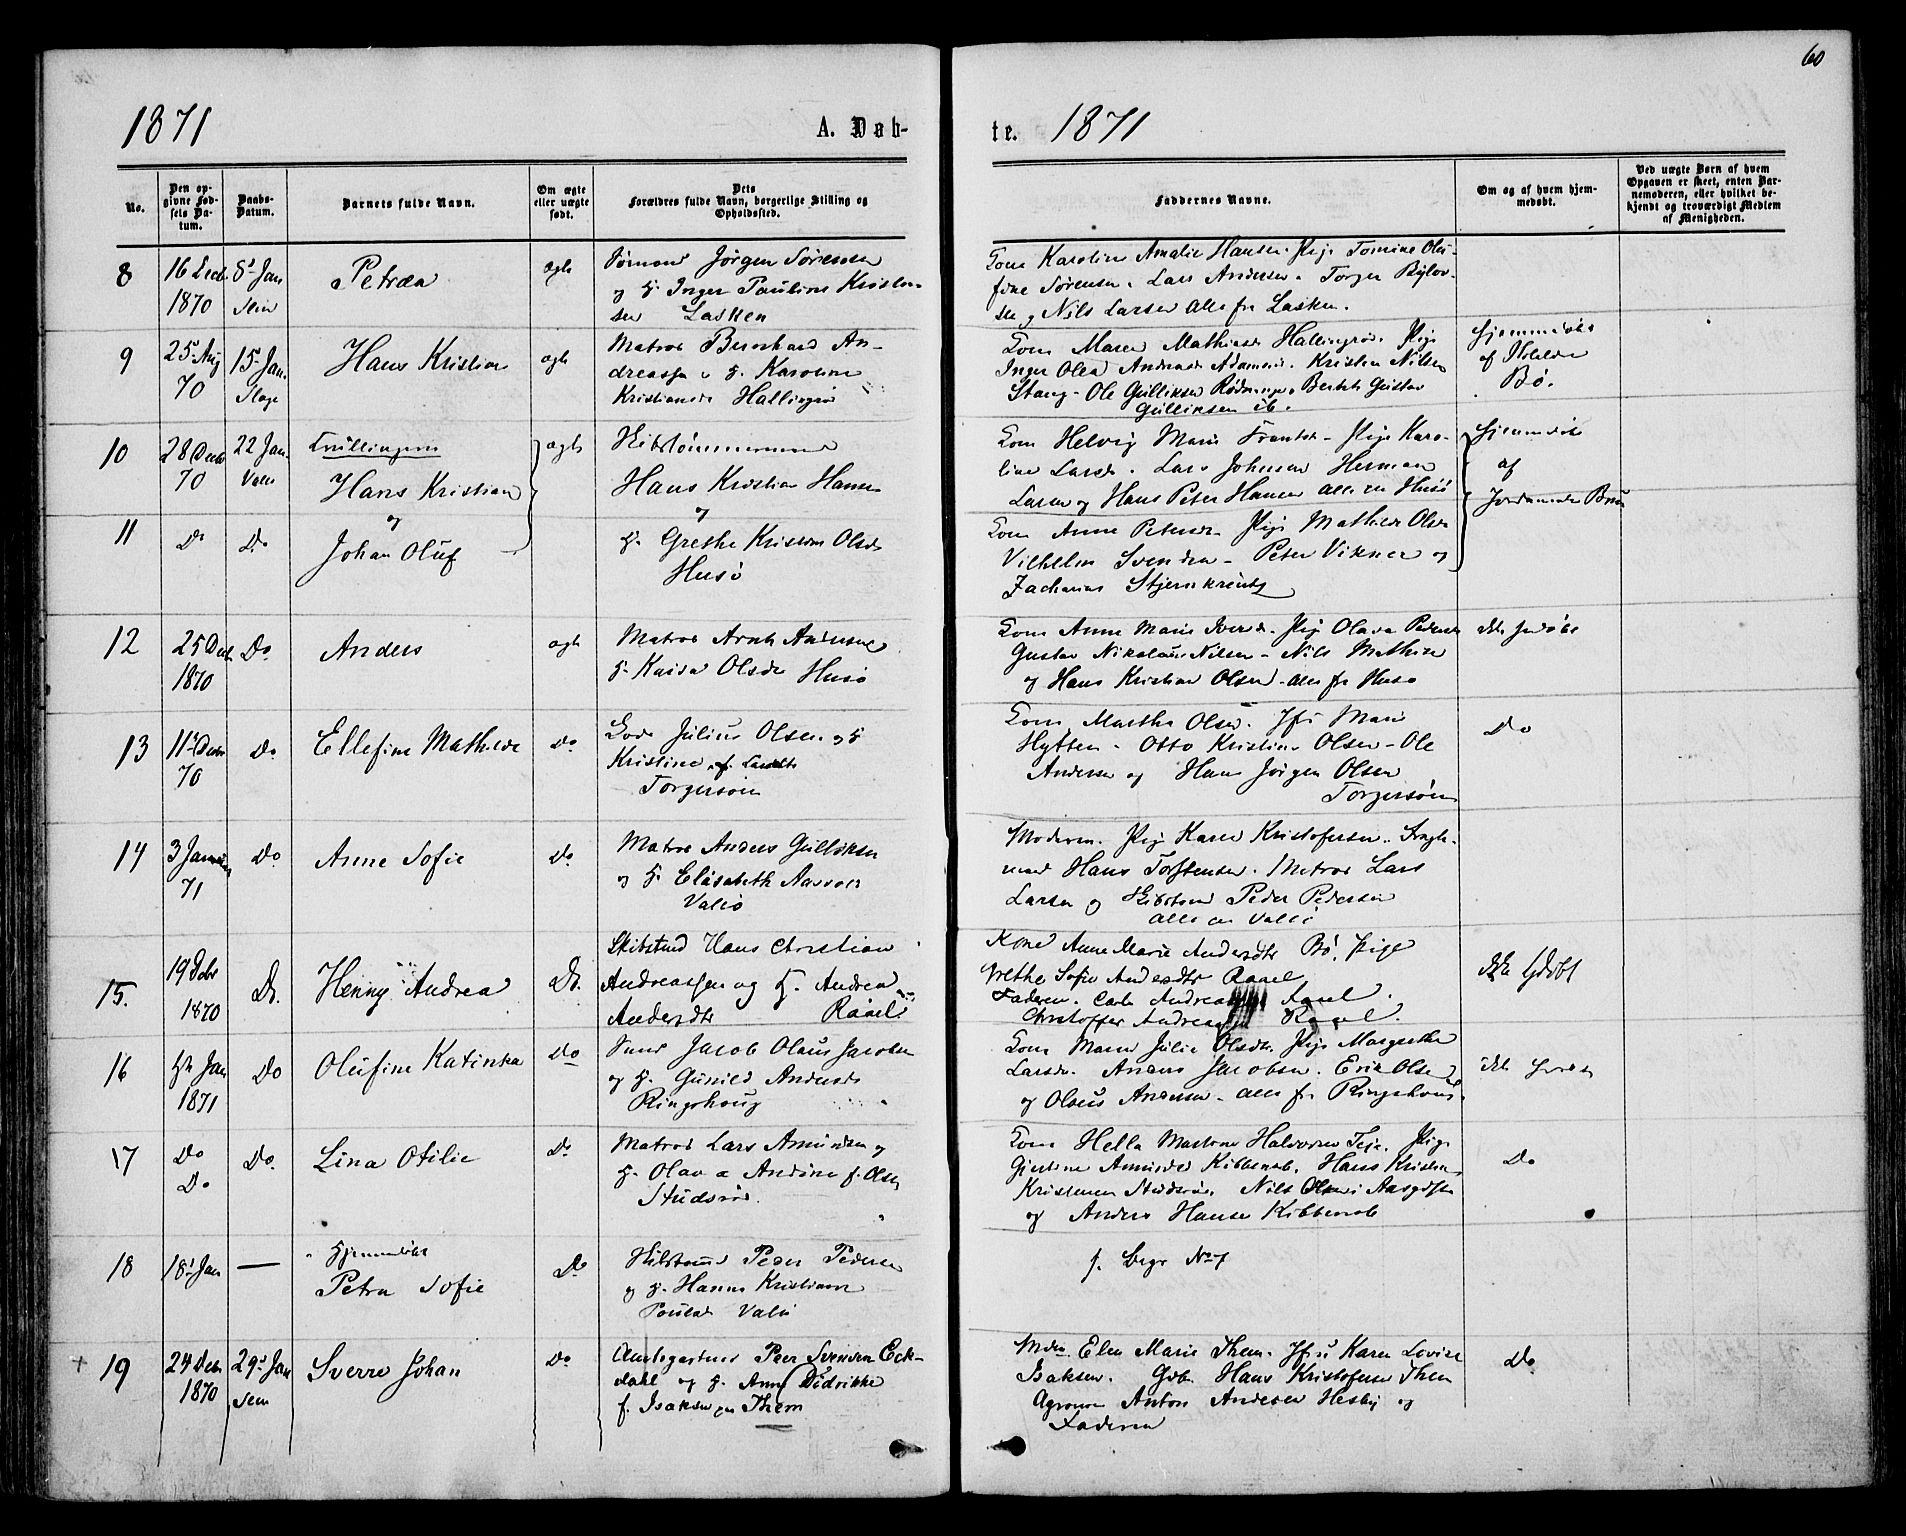 60
1871
A. Døb-
te. 1871
No.
Den op-
givne Fød-
sels Da-
tum.
Daabs-
Datum.
Barnets fulde Navn.
Om ægte
eller uægte
født.
Dets
Forældres fulde Navn, borgerlige Stilling og
Opholdssted.
Faddernes Navne.
Om og af hvem hjem-
medøbt.
Ved uægte Børn af hvem
Opgaven er skeet, enten Bar-
nemoderen, eller hvilket be-
kjendt og troværdigt Medlem
af Menigheden.
8
16 Decb
1870
8' Jan
Sem
Petræa
ægte
Sømand Jørgen Sørensen
og H. Inger Pauline Kristen-
sen Lasken
Kone Karoline Amalie Hansen. Pige Tomine Olu-
fine Sørensen. Lars Andersen. Torger
og Nils Larsen alle fr Lasken.
9
25 Aug
70
15 Jan
Slage
Hans Kristian
ægte
Matros Bernhard An-
dreassen & H. Karoline
Kristiansd Hallingrø
Kone Maren Mathisd Hallingrø. Pige
Inger Olea Andreasd Adamsrø. Kristen Nilsen
Stang - Ole Gulliksen Rødninger. Gustav
Gulliksen ib.
Hjemmedøbt
af
Bø.
10
28 Decb
70
22 Jan
Valø
Tvillingerne
Hans Kristian
og
ægte
Skibstømmermand
Hans Kristian Hansen
og
Kone Helvig Marie - Pige Karo-
line Larsd. Lars Johnsen Herman
Larsen og Hans Peter Hansen alle af Husø
Hjemmedøbt
af
Jordemoder
11
Do
Do
Johan Oluf
H. Grethe Kristine Olsd
Husø
Kone Anne Petersd. Pige Mathilde Olsd
Vilhelm Svendsen - Peter Vikner og
Zacharias Stjernkreutz
12
25 Decb
1870
Do
Anders
ægte
Matros Arnt Andersen
H. Kaisa Olsd Husø
Kone Anne Marie Iversd. Pige Olava Pedersd
Gustav Nikolai Nilsen - Nils Mathisen
og Hans Kristian Olsen - alle fr Husø
ikke hjdøbt
13
11 Decbr
70
Do
Ellefine Mathilde
Do
Julius Olsen og H
Kristine f. Larsdtr
Torgersøen
Kone Martha Olsen. Jfr Marie
Hytten. Otto Kristian Olsen - Ole
Andersen og Hans Jørgen Olsen
Torgersøen
Do
14
3 Januar
71
Do
Anne Sofie
Do
Matros Anders Gulliksen
og H Elisabeth
Valø
Moderen. Pige Karen Kristofersen.
Hans Torstensen. Matros Lars
Larsen og Skibstmd Peder Pedersen
alle af Valø
15.
19 Debr
1870
Do.
Henny Andrea
Do.
Skibstmd Hans Christian
Andreassen og H. Andrea
Andersdtr Råael
Kone Anne Marie Andersdtr Bø. Pige
Grethe Sofie Andersdtr Raael
Faderen. Carl Andreassen Raael.
Christoffer Andreassen Raael.
ikke hjdøbt
16
4 Jan
1871
Do
Olufine Katinka
Do
Jacob Olaus Jacobsen
og H. Gunild Andersd
Ringshoug
Kone Maren Julie Olsdtr. Pige Margrethe
Larsdr. Anders Jacobsen. Erik Olsen
og Olaus Andersen - alle fr. Ringshoug
ikke
17
Do
Do
Do.
Lina Otilie
Do
Matros Lars Amundsen og
H. Olava Andine f. Olsen
Studsrød.
Kone Hella Marthine Halvorsen Teie. Pige
Amundsd Kibbenok. Hans Kristian
Kristensen Studsrød. Nils Olsen
og Anders Hansen Kibbenok
Do
18
18' Jan
—
Hjemmedøbt
Petra Sofie
Do
Skibstmd Peder Pedersen
og H. Hanna Kristiane
Poulsd Valø
f. Begr No 7
19
24 Deb
1870
29' Jan
Sem
Sverre Johan
Do
Amtsgartner Peer Svensen Eck-
dahl og H. Anne Didrikke
f. Isaksen fra Them
Elen Marie Them. Jfr Karen Lovise
Isaksen. Gdbr. Hans Kristofersen Them
Agronom Anton Andersen Hesby og
Faderen
Do